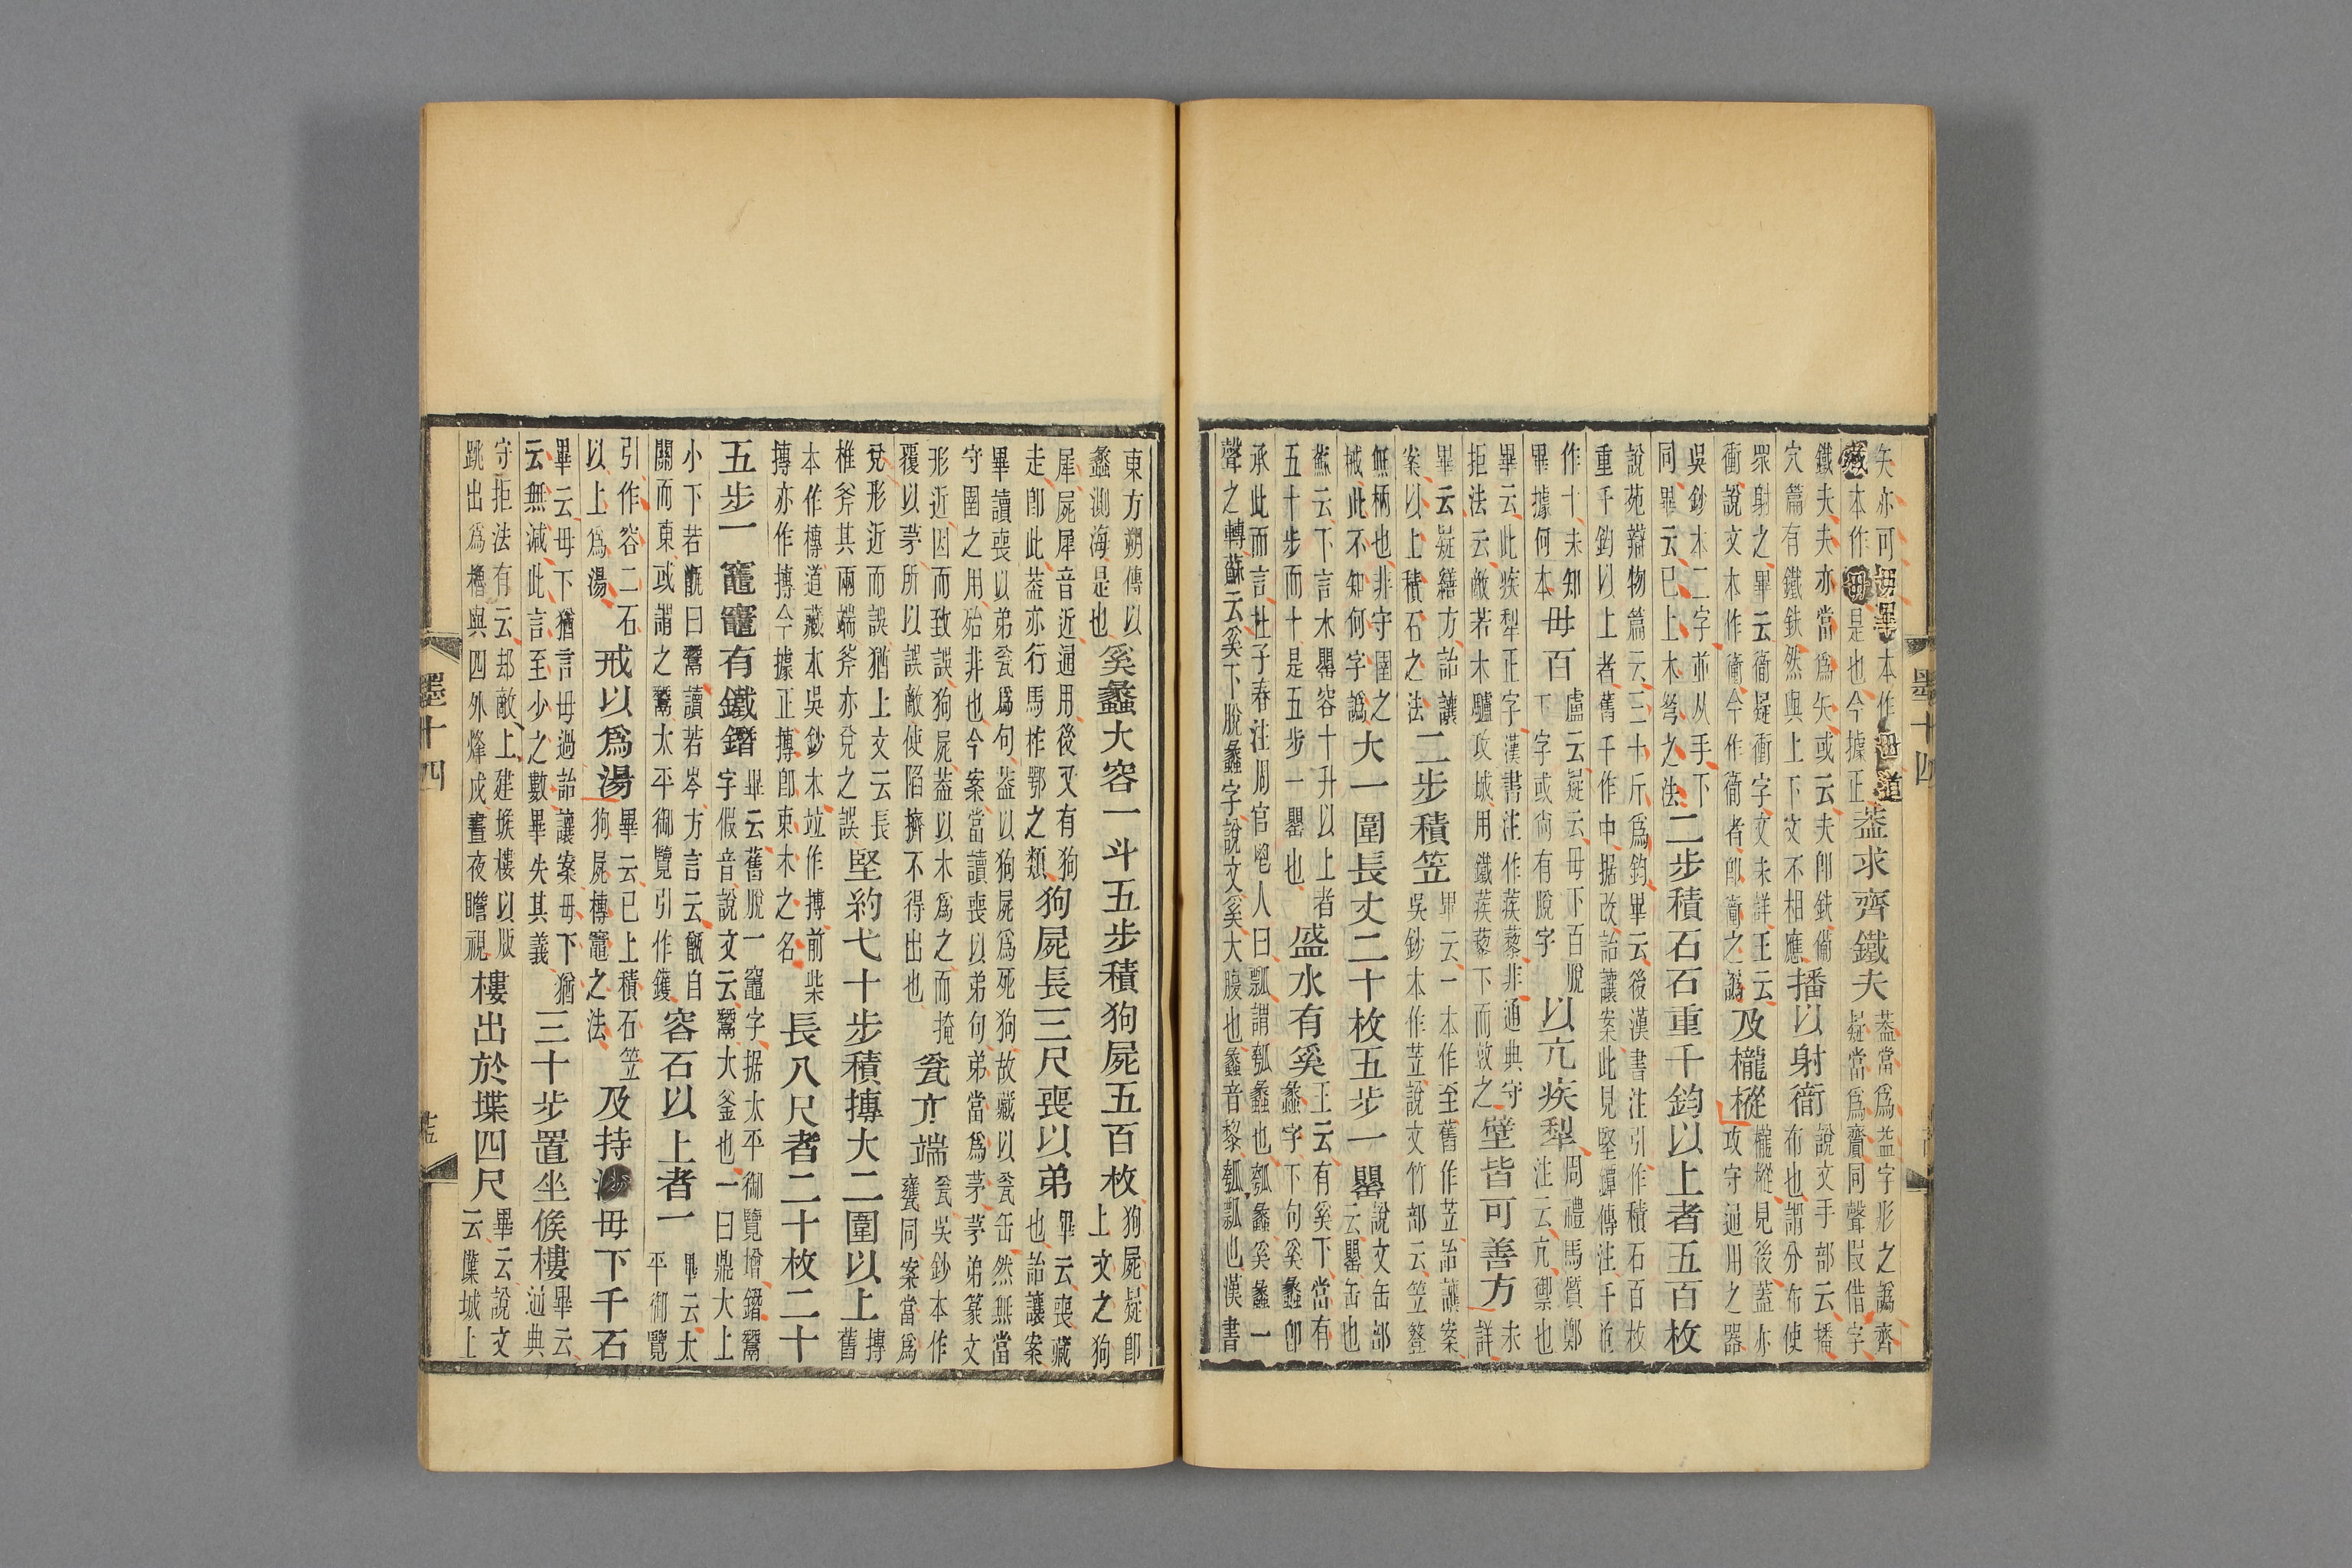 矢亦可毋畢本作毋道藏本作毋是也今據正蓋求齊鐵夫蓋當為盇字形之譌齊疑當為齎同聲叚借字
鐵夫夫亦當為矢或云夫卽鈇備穴篇有鐵鈇然與上下文不相應播以射衜說文手部云播布也謂分布使
眾射之畢云衜疑衝字文未詳王云衝說文本作衝今作衜者卽衝之譌及櫳樅櫳樅見後蓋亦攻守通用之器
吳鈔本二字並从手下同畢云已上木弩之法二步積石石重千鈞以上者五百枚
說苑辯物篇云三十斤爲鈞畢云後漢書注引作積石百枚重千鈞以上者舊千作中据改詒讓案此見堅鐔傳注千竝
作十未知畢據何本毋百盧云疑云毋下百脫下字或尙有脫字以亢疾犁周禮馬質鄭注云亢禦也
畢云此疾犁正字漢書注作蒺藜非通典守拒法云敵若木驢攻城用鐵蒺藜下而敦之壁皆可善方未詳
畢云疑繕方詒讓案以上積石之法二步積笠畢云一本作至舊作苙詒讓案吳鈔本作苙說文竹部云笠簦
無柄也非守圉之械此不知何字譌大一圍長丈二十枚五步一罌說文缶部云罌缶也
蘇云下言木罌容十升以上者五十步而十是五步一罌也盛水有奚王云有奚下當有蠡字下句奚蠡卽
承此而言杜子春注周官鬯人曰瓢謂瓠蠡也瓠蠡奚蠡一聲之轉蘇云奚下脫蠡字說文奚大腹也蠡音黎瓠瓢也漢書
墨十四
東方朔傳以蠡測海是也奚蠡大容一斗五步積狗屍五百枚狗屍疑卽上文之狗
犀屍犀音近通用後又有狗走卽此蓋亦行馬柞鄂之類狗屍長三尺喪以弟畢云喪藏也詒讓案
畢讀喪以弟瓮爲句蓋以狗屍爲死狗故藏以瓮缶然無當守圉之用殆非也今案當讀喪以弟句弟當爲茅茅弟篆文
形近因而致誤狗屍蓋以木爲之而掩覆以茅所以誤敵使陷擠不得出也瓮丌端瓮吳鈔本作甕同案當爲
兌形近而誤猶上文云長椎斧其兩端斧亦兌之誤堅約弋十步積摶大二圍以上摶舊
本作槫道藏本吳鈔本竝作摶前柴摶亦作摶今據正摶卽束木之名長八尺者二十枚二十
五步一竈竈有鐵鐕畢云舊脫一竈字据太平御覽增鐕鬵字假音說文云鬵大釜也一曰鼎大上
小下若甑曰鬵讀若岑方言云甑自關而東或謂之鬵太平御覽引作鑊容石以上者一畢云太平御覽
引作容二石以上爲湯戒以爲湯畢云已上積石笠狗屍槫竈之法及持沙毋下千石
畢云毋下猶言毋過詒讓案毋下猶云無減此言至少之數畢失其義三十步置坐候樓畢云通典
守拒法有云却敵上建堠樓以版跳出爲櫓與四外烽戍晝夜瞻視樓出於堞四尺畢云說文云堞城上
墨十四